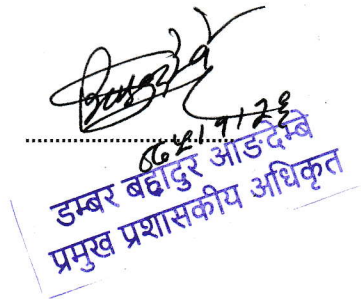 डम्बर बहादुर आङदेम्बे
प्रमुख प्रशासकीय अधिकृत